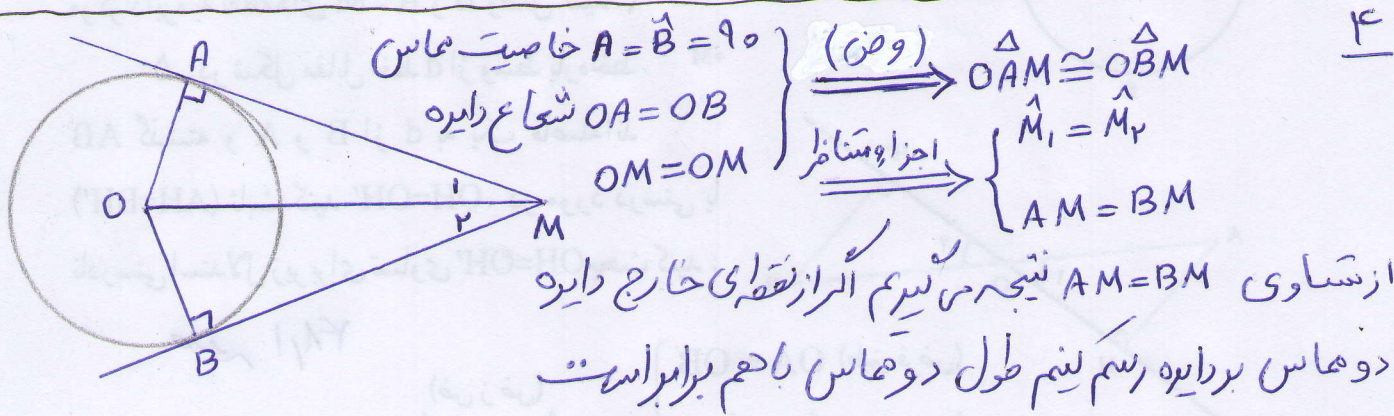 ۴
A = B̂ = ۹۰ خاصیت مماس
OA = OB شعاع دایره
OM = OM
(وض)
OÂM ≅ OB̂M
اجزاء متناظر
M̂₁ = M̂₂
AM = BM
A
O
۱
۲
M
B
از تساوی AM = BM نتیجه می گیریم اگر از نقطه‌ای خارج دایره
دو مماس بر دایره رسم کنیم طول دو مماس با هم برابر است